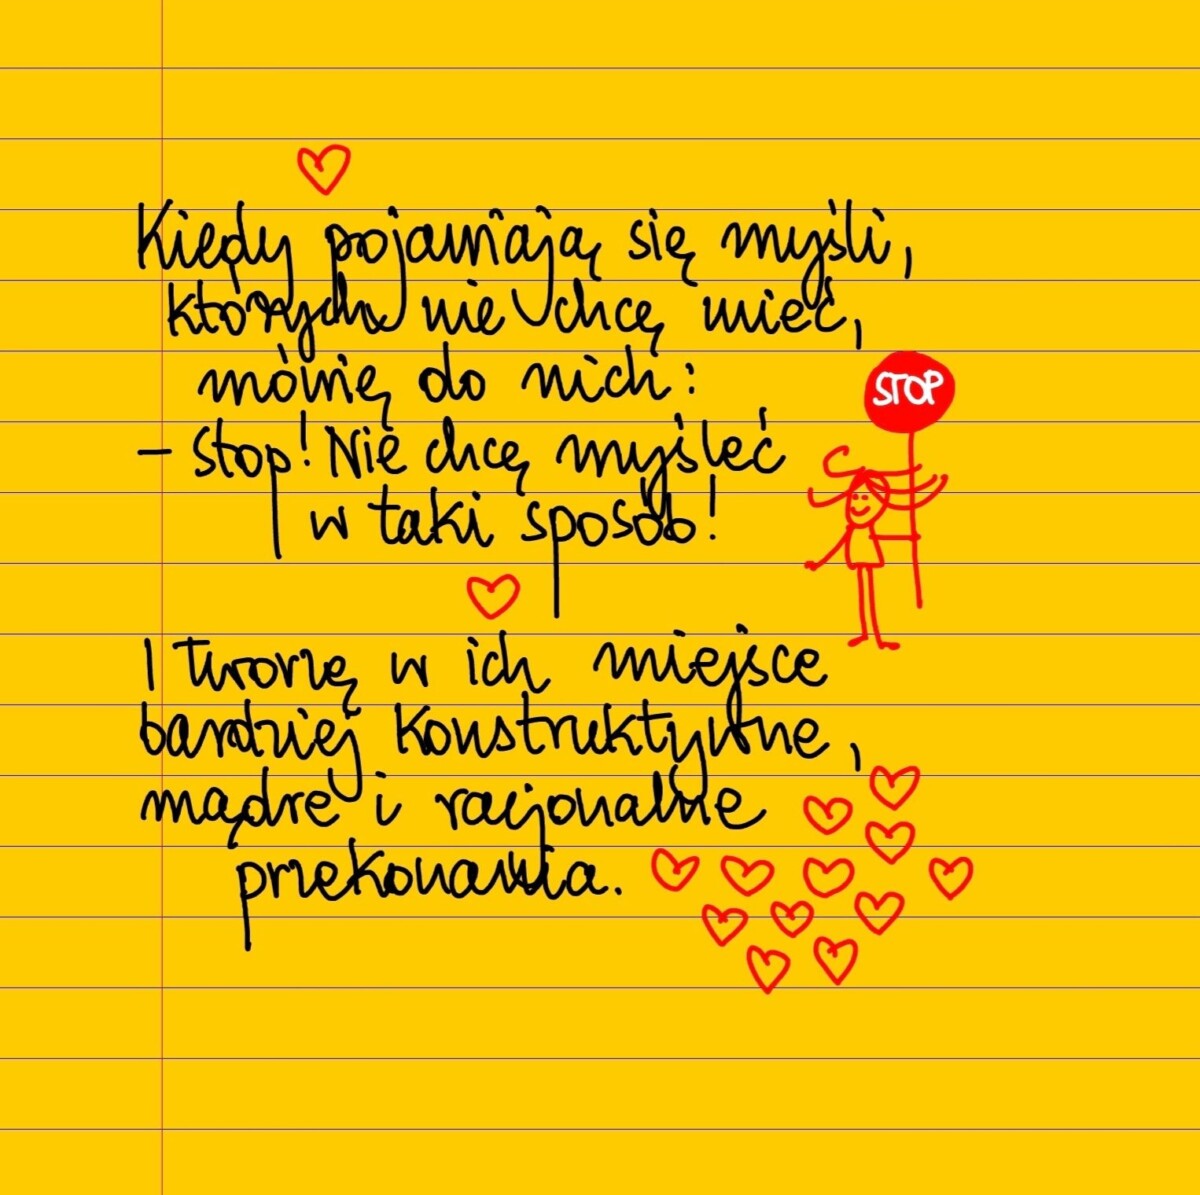 Kiedy pojawiają się myśli,
których nie chcę mieć,
mówię do nich:
- Stop! Nie chcę myśleć
w taki sposób!
STOP
I tworzę w ich miejsce
bardziej konstruktywne,
mądre i racjonalne
przekonania.